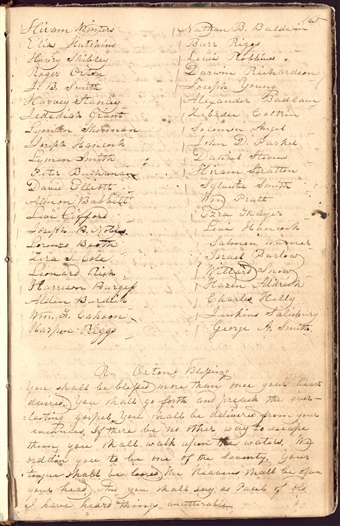 165
Hiram Winters
Elias Hutchins
Henry Shibley
Roger Orton
J. B. Smith
Harvey Stanley
Zebedee Coltrin
Lyman Sherman
Joseph Hancock
Lyman Smith
Peter Buchanan
David Elliott
Almon Babbitt
Levi Gifford
Joseph B. Noble
Lorenzo Booth
Zera S. Cole
Leonard Rich
Harrison Burgess
Alden Burdick
Wm. F. Cahoon
Harper Riggs
Nathan B. Baldwin
Burr Riggs
Lewis Robbins
Darwin Richardson
Joseph Young
Alexander Badlam
Solomon Angel
John D. Parker
Daniel Stearns
Hiram Stratton
Sylvester Smith
Wm. Pratt
Ezra Thayer
Levi Hancock
Salmon Warner
Israel Barlow
Willard Snow
Hazen Aldrich
Charles Kelly
Jenkins Salisbury
George A. Smith
R. Orton's Blessing
you shall be blessed more than once your heart
desires. You shall go forth and preach the ever-
lasting gospel. You shall be delivered from your
enemies. If there be no other way to escape
them you shall walk upon the waters. We
ordain you to be one of the seventy. Your
tongue shall be loosed. The Heavens shall be open
your head. For you shall say as Paul of old
I have heard things unutterable.